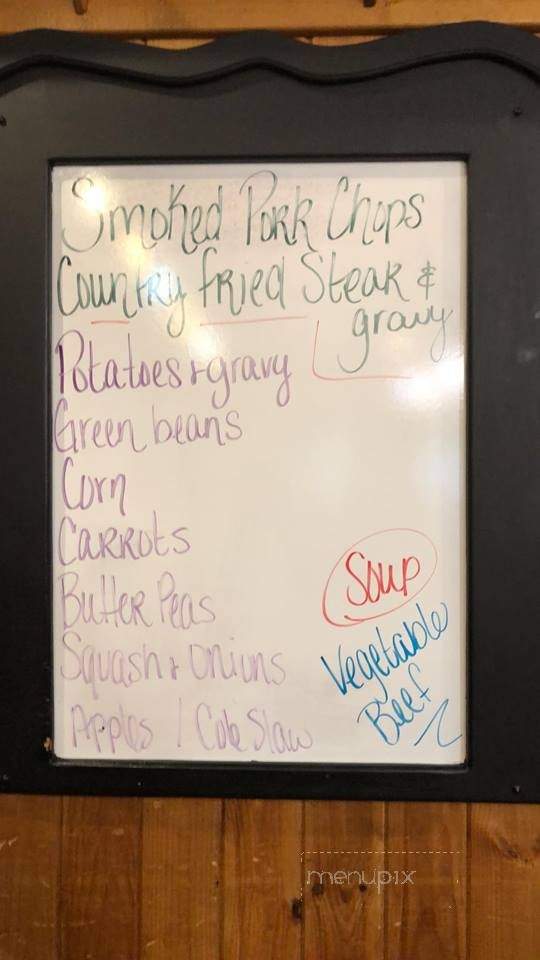 Smoked Pork Chops
Country fried Steak &
gravy
Potatoes + gravy
Green beans
Corn
Carrots
Butter Peas
Squash + Onions
Apples / Cole Slaw
Soup
Vegetable
Beef
menupix